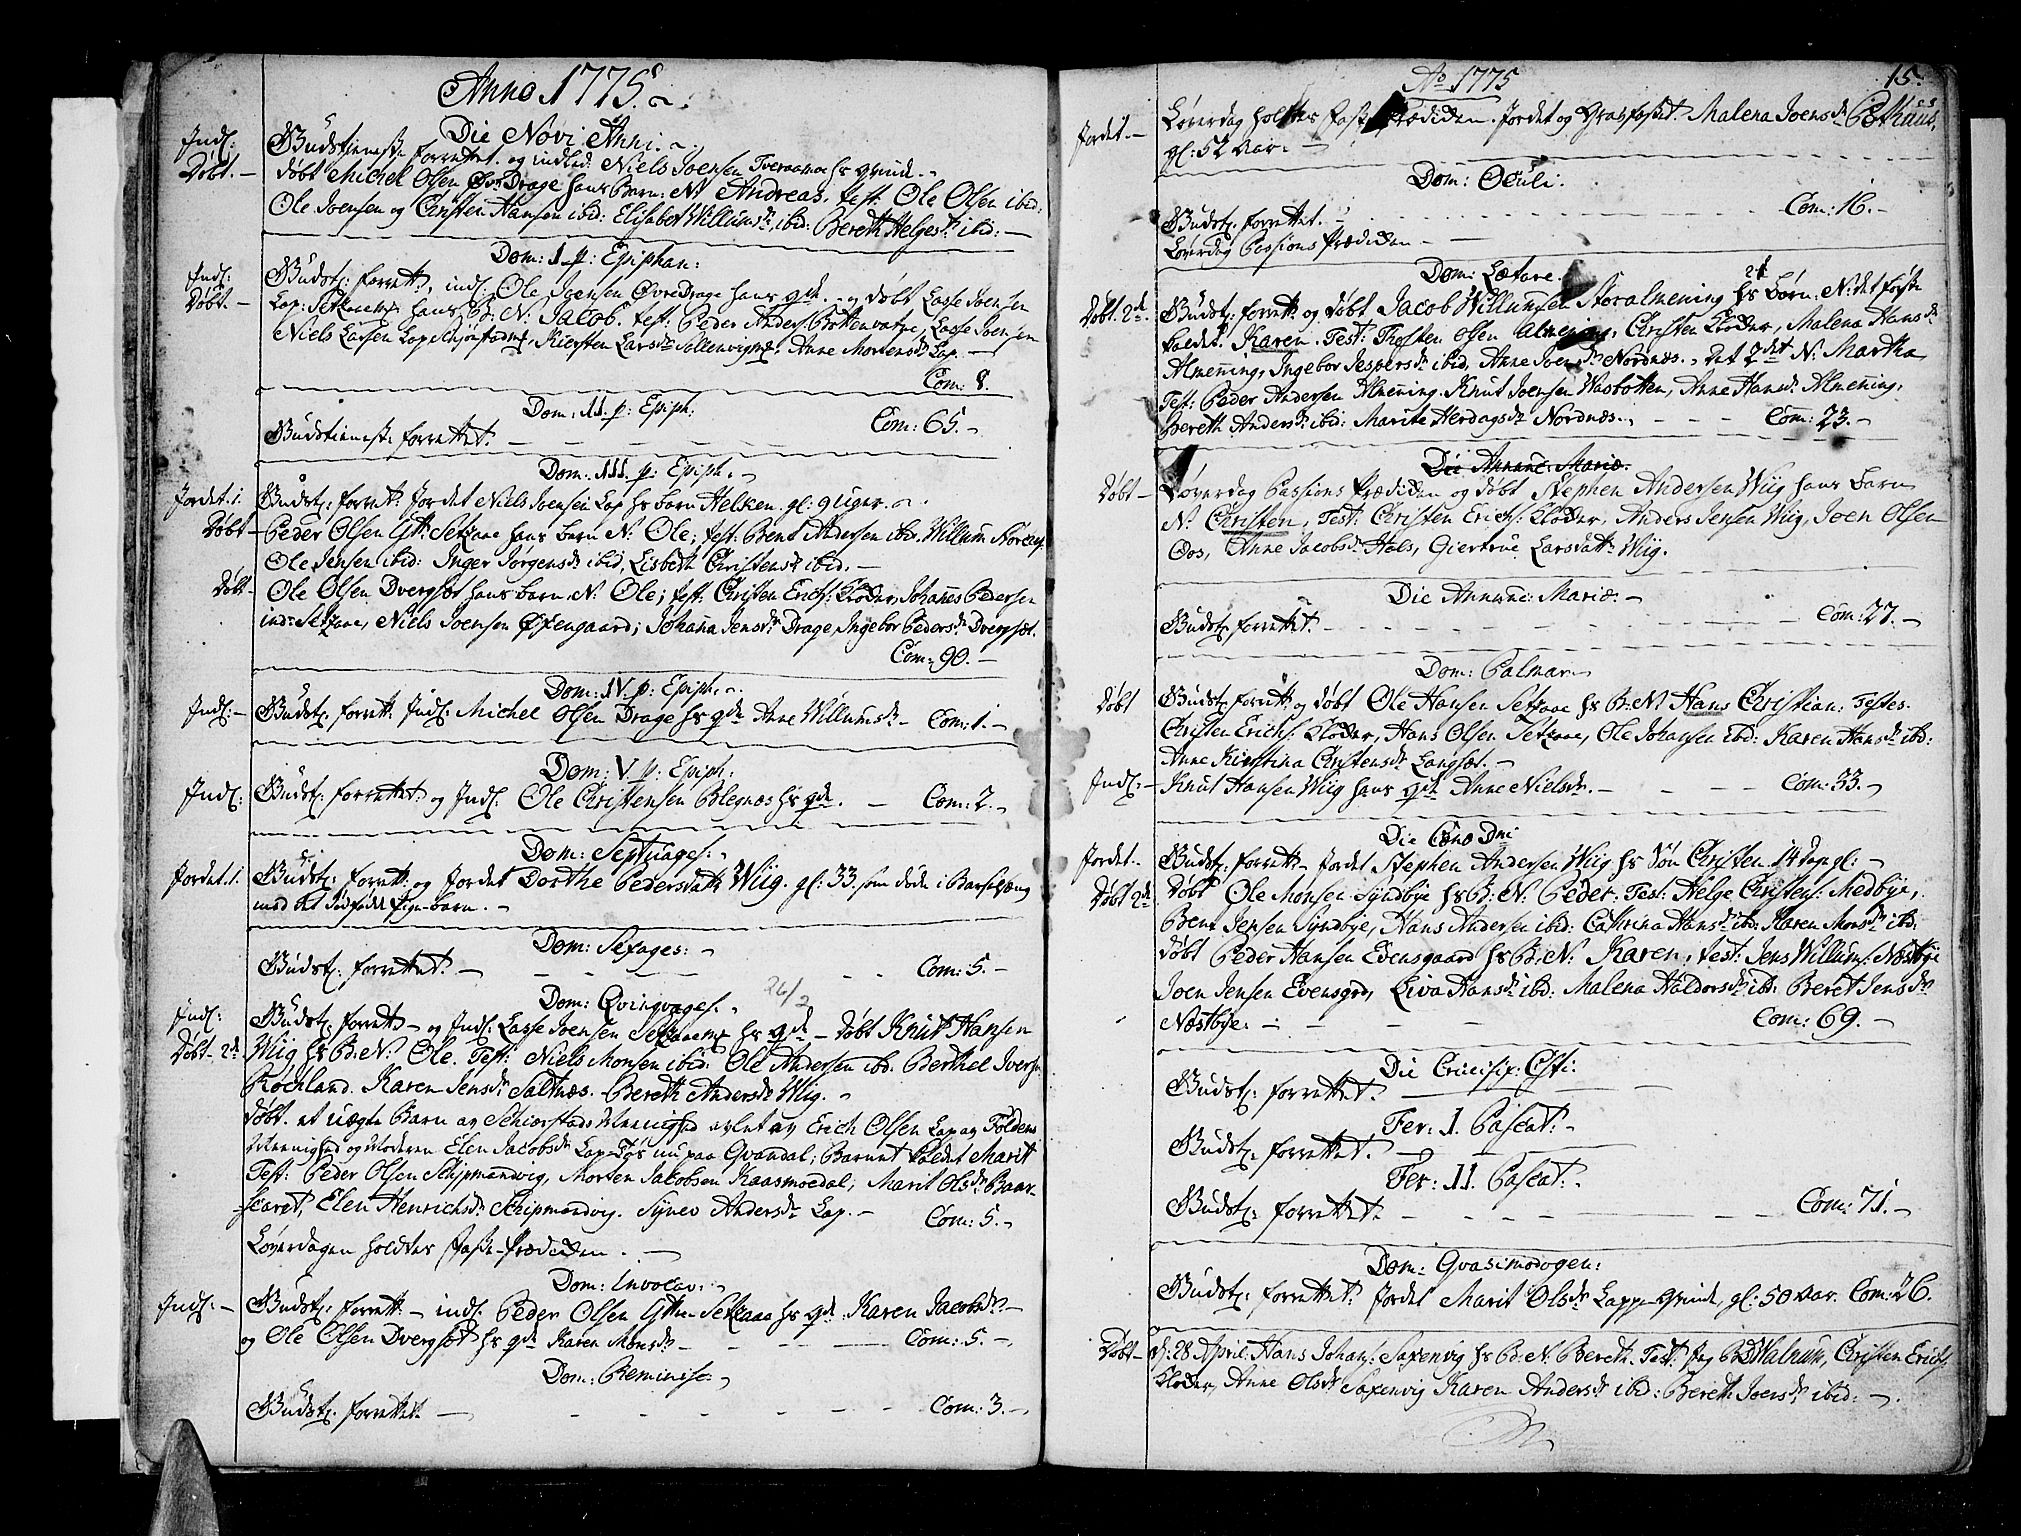 Anno 1775.
Die Novi Anni.
Indl: Gudstienest forrettet. og indled. Niels Joensen Tveraamo hs qvinde.
Døbt. Døbt Michel Olsen Øv Drage hans Barn: N. Andreas. test: Ole Olsen ibid:
Ole Joensen og Christen Hansen ibid: Elisabet Willumsdr ibid: Bereth Helgesdr ibid:
Dom: I. p: Epiphan:
Indl: Gudst: forrett, indl: Ole Joensen ØvreDrage hans qde. og døbt Lasse Joensen
Døbt. Lap: hans B: N: Jacob. test: Peder Anders: Bottenvatne, Lasse Joensen
Niels Larsen Lap Kiersten Larsdr Anne Mortensdr Lap.
Com: 8.
Dom: II. p: Epiph:
Gudstienest forrettet. Com: 65.
Dom. III. p: Epiph.
Jordet. 1. Gudst: forrett. Jordet Niels Joensen Lap hs barn Helken. gl: 9 uger.
Døbt Peder Olsen Ytt: Setzaae hans barn N: Ole; test: Bent Andersen ibd. Willum
Ole Jensen ibid: Inger Jørgensdr ibid, Lisbeth Christensdr ibid.
Døbt Ole Olsen Dvergset hans barn N: Ole; test: Christen Erichs: Kloder, Johanes Pedersen
ind: Setzaae, Niels Joensen Øxengaard; Johana Jensdr Drage, Ingebor Pedersdr Dvergset.
Com: 90.
Dom: IV. p: Epiph.
Indl: Gudst: forrett. Indl: Michel Olsen Drage hs qde Anne Willumsdr Com: 1.
Dom: V. p: Epiph:
Indl: Gudst: forrettet: og Indl: Ole Christensen Blegnæs hs qde. Com: 2.
Dom: Septuages:
Jordet. 1. Gudst: forrett. og Jordet Dorthe Pedersdatt Wiig. gl: 33. som døde i Barselseng
med et
Dom: Sexages:
Gudst: forrettet. Com: 5.
26/2
Dom: Qvinqvages.
Indl: Gudst: forrett og Indl: Lasse Joensen hs qde Døbt Knut Hansen
Døbt 2de Wiig hs B: N: Ole. Test: Niels Monsen ibid: Ole Andersen ibd. Berthel Ivers:
Røchland. Karen Jensdr Saltnæs. Bereth Andersdr Wiig.
Døbt. et uægte Barn av Schierstads Menighed avlet av Erich Olsen Lap av Foldens
Menighed og Moderen Elen Jacobsdr Lap-Tøs nu paa Qvandal; Barnet kaldet Marit
Test: Peder Olsen Schipmandvig, Morten Jakobsen Kaasmoedal; Marit Olsdr Baar-
Elen Henrichsdr Schipmandvig. Synev Andersdr Lap. Com: 5.
Løverdagen holdtes faste-Prædicken.
Dom: Invocav:
Indl: Gudst: forrett. indl: Peder Olsen Ytter Setzaae hs qde Karen Jacobsdr.
og Ole Olsen Dvergset hs qde Karen Monsdr Com: 5.
Dom: Reminisc:
Gudst: forrettet. Com: 3.
Ao 1775 15.
Jordet. Løverdag holdtes faste Prædicken. Jordet og Gravfæstet Malena Joensdr
gl: 52 aar.
Dom: Oculi.
Gudst: forrettet. Com: 16.
Løverdag Passions Prædicken
Dom: Lætare.
Døbt. 2de Gudst: forrett og døbt Jacob Willumsen Storalmening hs 2de Børn: N: det første
kaldet. Karen. Test: Thosten Olsen Almening, Christen Kloder, Malena Hansdr
Almening, Ingebor Jespersdr ibid, Anne Joensdr Nordnæs. Det 2det N: Martha
Test: Peder Andersen Almening. Knut Joensen Wasbotten, Anne Hansdr Almening.
Bereth Andersdr ibid: Marite Herdagsdr Nordnæs. Com: 23.
Die Annunc: Mariæ.
Døbt Løverdag Passions Prædicken og døbt Stephen Andersen Wiig hans barn
N: Christen, Test: Christen Erichs: Kloder, Anders Jensen Wiig, Joen Olsen
Oos, Anne Jacobsdr Hals, Giertrue Larsdatt Wiig.
Die Annunc: Mariæ.
Gudst: forrettet. Com: 27.
Dom: Palmar
Døbt Gudst: forrett og døbt Ole Hansen Setzaae hs B: N: Hans Christian: Testes.
Christen Erichs: Kloder, Hans Olsen Setzaae, Ole Johansen ibid: Karen Hansdr ibd:
Anne Kirstina Christensdr Langset.
Indl: Knut Hansen Wiig hans qde Anne Nielsdr. Com: 33.
Die Cæna Dni
Jordet. Gudst: forrett. Jordet Stephen Andersen Wiig hs Søn Christen 14 dage gl:
Døbt 2de Døbt Ole Monsen Syndbye hs B: N: Peder. Test: Helge Christens: Medbye,
Bent Jensen Syndbye, Hans Andersen ibid: Cathrina Hansdr ibd: Karen Monsdr ibd:
Døbt Peder Hansen Evensgaard hs B: N: Karen, test: Jens Willums: Næstbye
Joen Jensen Evensgrd, Liva Hansdr ibid: Malena Haldorsdr ibd: Beret Jensdr
Næstbye. Com: 69.
Die Crucifix: Csti:
Gudst: forrettet.
Fer: I. Pascat:
Gudst: forrettet.
Fer: II. Pascat:
Gudst: forrettet. Com: 71.
Dom: Qvasimodogen:
Gudst: forrettet. Jordet Marit Olsdr Lapp-Qvinde, gl: 50 aar. Com: 26.
Døbt d: 28 April: Hans Johans: Saxenvig hs B: N: Bereth. Test: Jeg Christen Erichs:
Kloder, Anne Olsdr Saxenvig Karen Andersdr ibid: Bereth Joensdr ibid: